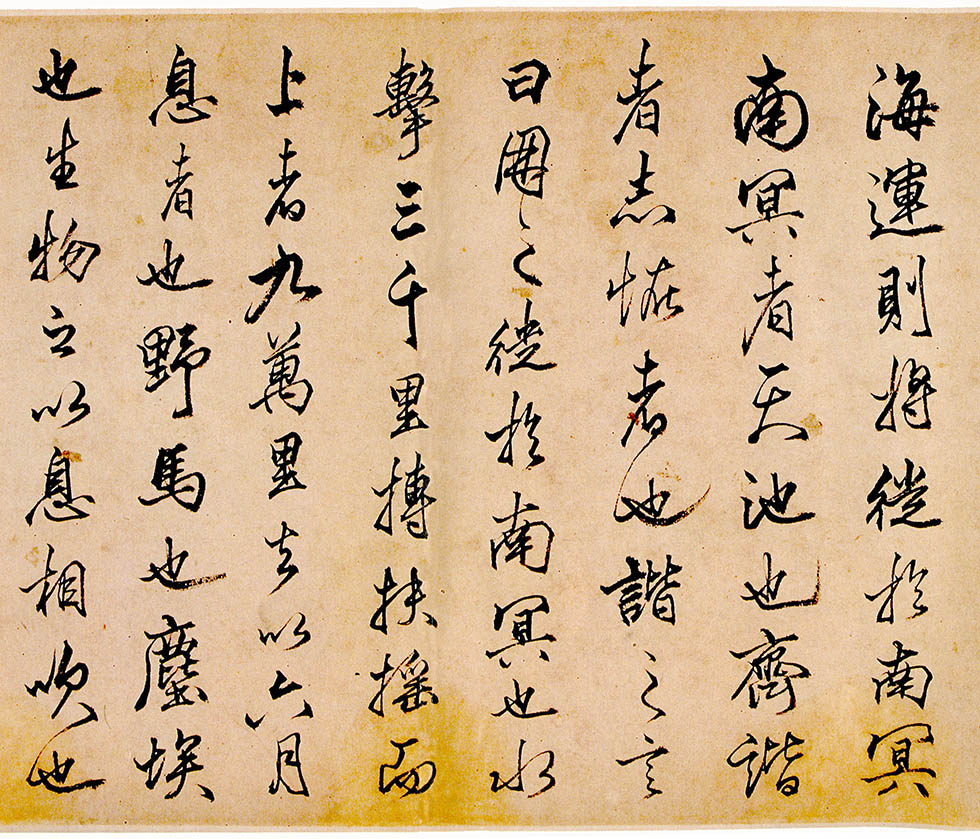 海運則將徙於南冥
南冥者天池也齊諧
者志恠者也諧之言
曰鵬之徙於南冥也水
擊三千里摶扶搖而
上者九萬里去以六月
息者也野馬也塵埃
也生物之以息相吹也